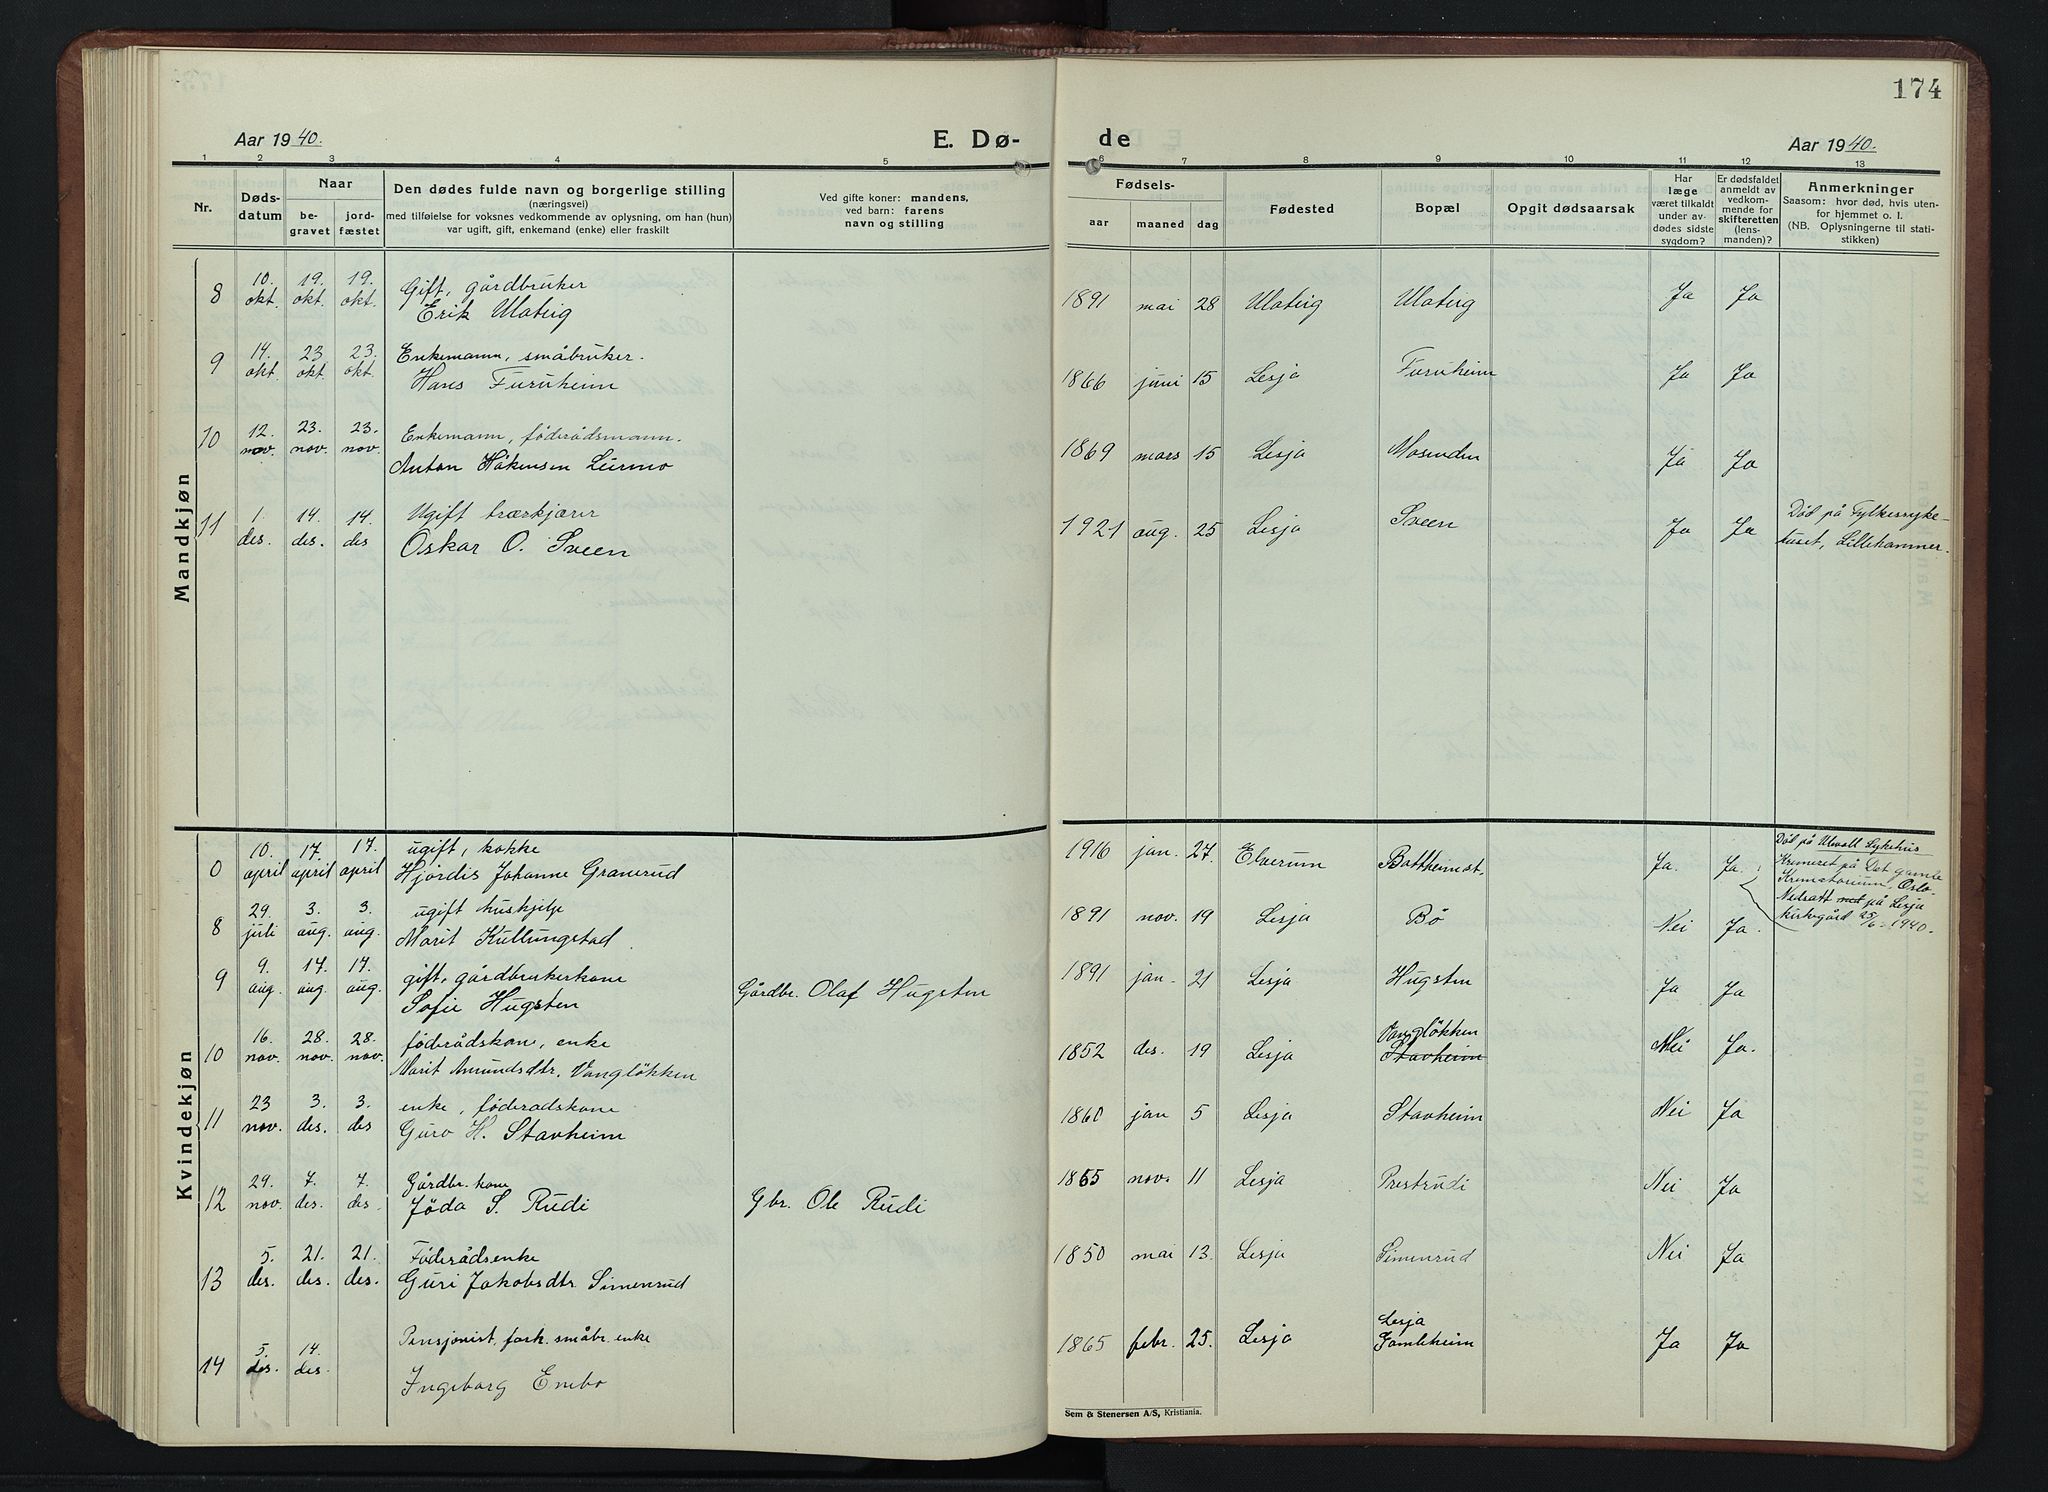 174
Aar 1940.
E. Dø-
de
Aar 1940.
1 2 3 4 5 6 7 8 9 10 11 12 13
Nr.
Døds-
datum
Naar
be-
gravet
jord-
fæstet
Den dødes fulde navn og borgerlige stilling
(næringsvei)
med tilføielse for voksnes vedkommende av oplysning, om han (hun)
var ugift, gift, enkemand (enke) eller fraskilt
Ved gifte koner: mandens,
ved barn: farens
navn og stilling
Fødsels-
aar
maaned
dag
Fødested
Bopæl
Opgit dødsaarsak
Har
læge
været tilkaldt
under av-
dødes sidste
sygdom?
Er dødsfaldet
anmeldt av
vedkom-
mende for
skifteretten
(lens-
manden)?
Anmerkninger
Saasom: hvor død, hvis uten-
for hjemmet o. l.
(NB. Oplysningerne til stati-
stikken)
Mandkjøn
8 10. okt. 19. okt. 19. okt. Gift, gårdbruker
Erik Ulateig 1891 mai 28 Ulateig Ulateig Ja Ja
9 14. okt. 23 okt. 23. okt. Enkemann, småbruker.
Hans Furuheim 1866 juni 15 Lesja Furuheim Ja Ja
10 12. nov. 23. nov. 23. nov. Enkemann, föderådsmann.
Anton Håkensen Lurmo 1869 mars 15 Lesja Mosenden Ja Ja
11 1. des. 14. des. 14. des Ugift
Oskar O. Sveen 1921 aug. 25 Lesja Sveen Ja Ja Död på Fylkessyke-
huset, Lillehammer.
Kvindekjøn
0 10. april 17. april 17. april ugift, kokke
Hjördis Johanne Granerud 1916 jan. 27. Elverum Bottheim st. Ja. Ja. Död på Ulvåll Sykehus
Kremeret på Det gamle
Krematorium, Oslo.
Nedsatt på Lesja
kirkegård 25/6 1940.
8 29. juli 3. aug. 3. aug. ugift huskjelp
Marit Kullungstad 1891 nov. 19 Lesja Bö Nei Ja.
9 9. aug. 17. aug. 17. aug. gift, gårdbrukerkone
Sofie Hugsten Gårdbr. Olaf Hugsten 1891 jan. 21 Lesja Hugsten Ja Ja
10 16. nov. 28. nov. 28. nov. föderådskone, enke
Marit Amundsdtr. Vanglökken 1852 des. 19 Lesja Vanglökken Stavheim Nei Ja.
11 23 nov. 3. des. 3. des enke, föderadskone
Guro H. Stavheim 1860 jan 5 Lesja Stavheim Nei Ja
12 29. nov. 7. des. 7. des. Gårdbr. kone
Jöda S. Rudi Gbr. Ole Rudi 1865 nov. 11 Lesja Prestrudi Nei Ja
13 5. des. 21. des. 21. des. Föderådsenke
Guri Jakobsdtr Simenrud 1850 mai 13. Lesja Simenrud Nei Ja
14 5. des. 14. des. Pensjonist, fork. småbr. enke
Ingeborg Enebo 1865 febr. 25. Lesja Lesja Gamleheim Ja Ja
Sem & Stenersen A/S, Kristiania.